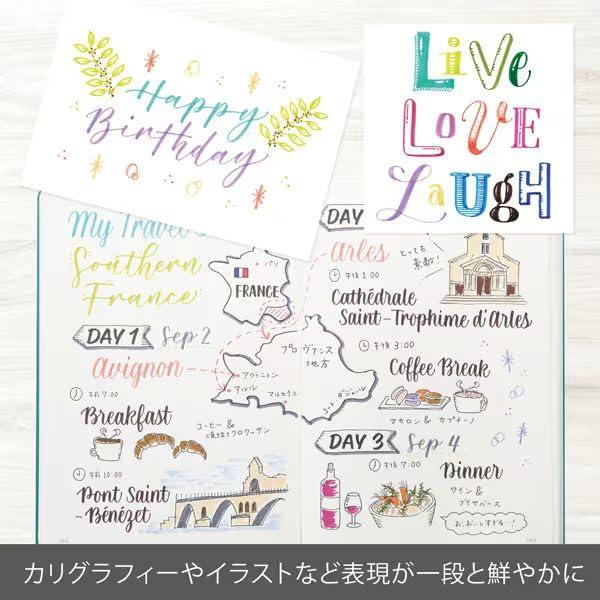 Happy
Birthday
Live
LOVE
Laugh
My Travel
Southern
France
DAY 1 Sep 2
Avignon
午前 7:00
Breakfast
コーヒー &
焼き立てクロワッサン
午前 10:00
Pont Saint
-Bénézet
パリ
FRANCE
プロヴァンス
地方
アヴィニョン
アルル
マルセイユ
コートダジュール
DAY
Arles
とっても
素敵!
午後 1:00
Cathédrale
Saint-Trophime d'Arles
午後 3:00
Coffee Break
マカロン & カプチーノ
DAY 3 Sep 4
午後 7:00
Dinner
ワイン &
ブイヤベース
おいしすぎる…!
カリグラフィーやイラストなど表現が一段と鮮やかに